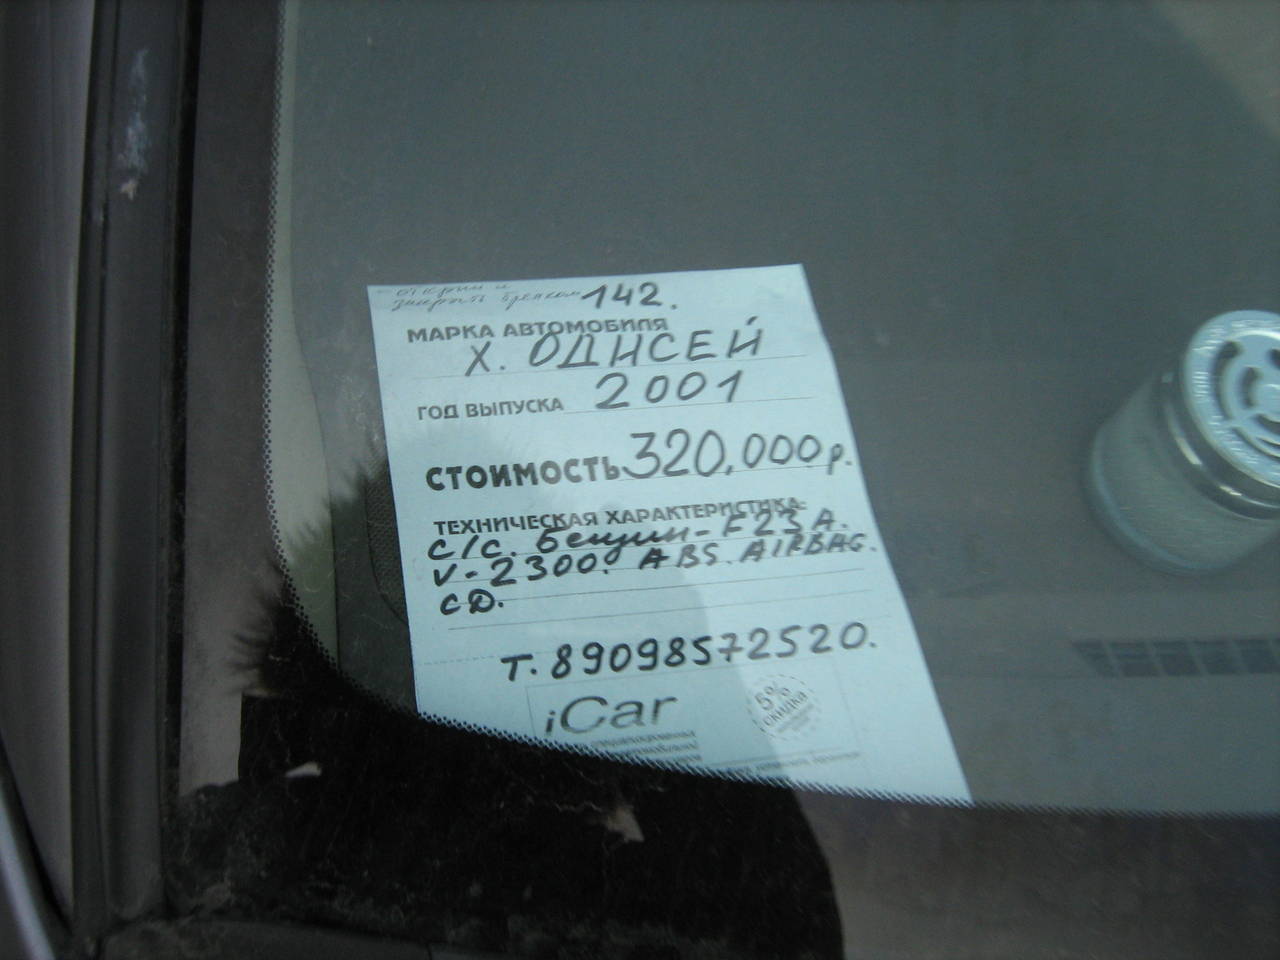 142.
МАРКА АВТОМОБИЛЯ
Х. ОДИСЕЙ
ГОД ВЫПУСКА 2001
СТОИМОСТЬ 320.000 р.
ТЕХНИЧЕСКАЯ ХАРАКТЕРИСТИКА
с/с. Бензин - F23A.
V-2300. ABS. AIRBAG.
CD.
Т. 89098572520.
iCar
5%
СКИДКА